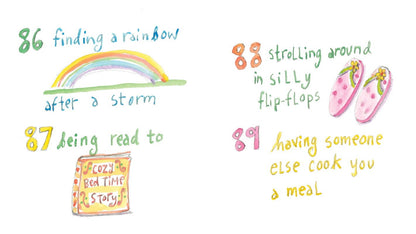 86 finding a rainbow
after a storm
87 being read to
COZY
BED TIME
STORY
88 strolling around
in silly
flip-flops
89 having someone
else cook you
a meal